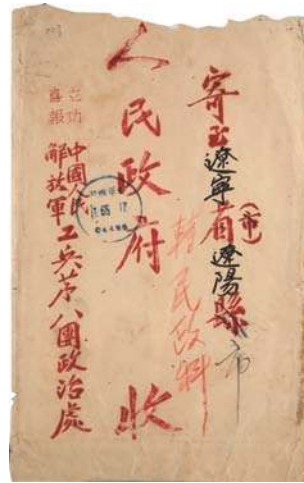 寄至遼寧省(市)遼陽縣市
轉民政科
人民政府 收
立功
喜報
中國人民
解放軍工兵第八團政治處